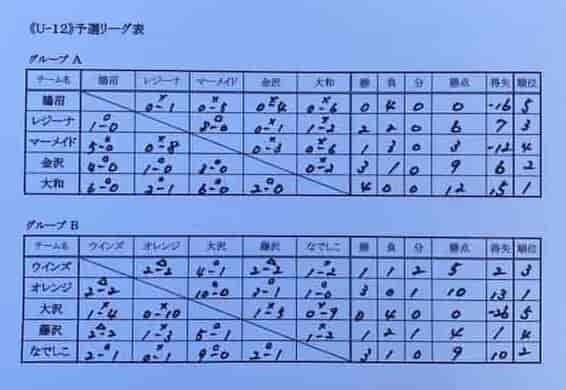 《U-12》予選リーグ表
グループ A
チーム名 鵠沼 レジーナ マーメイド 金沢 大和 勝 負 分 勝点 得失 順位
鵠沼 × 0-1 × 0-5 × 0-4 × 0-6 0 4 0 0 -16 5
レジーナ ○ 1-0 ○ 8-0 × 0-1 × 1-2 2 2 0 6 7 3
マーメイド ○ 5-0 × 0-8 × 0-3 × 0-6 1 3 0 3 -12 4
金沢 ○ 4-0 ○ 1-0 ○ 3-0 × 0-2 3 1 0 9 6 2
大和 ○ 6-0 ○ 2-1 ○ 6-0 ○ 2-0 4 0 0 12 15 1
グループ B
チーム名 ウインズ オレンジ 大沢 藤沢 なでしこ 勝 負 分 勝点 得失 順位
ウインズ △ 2-2 ○ 4-1 △ 2-2 × 1-2 1 1 2 5 2 3
オレンジ △ 2-2 ○ 10-0 ○ 3-1 ○ 1-0 3 0 1 10 13 1
大沢 × 1-4 × 0-10 × 1-5 × 0-9 0 4 0 0 -26 5
藤沢 △ 2-2 × 1-3 ○ 5-1 × 1-2 1 2 1 4 1 4
なでしこ ○ 2-1 × 0-1 ○ 9-0 ○ 2-1 3 1 0 9 10 2